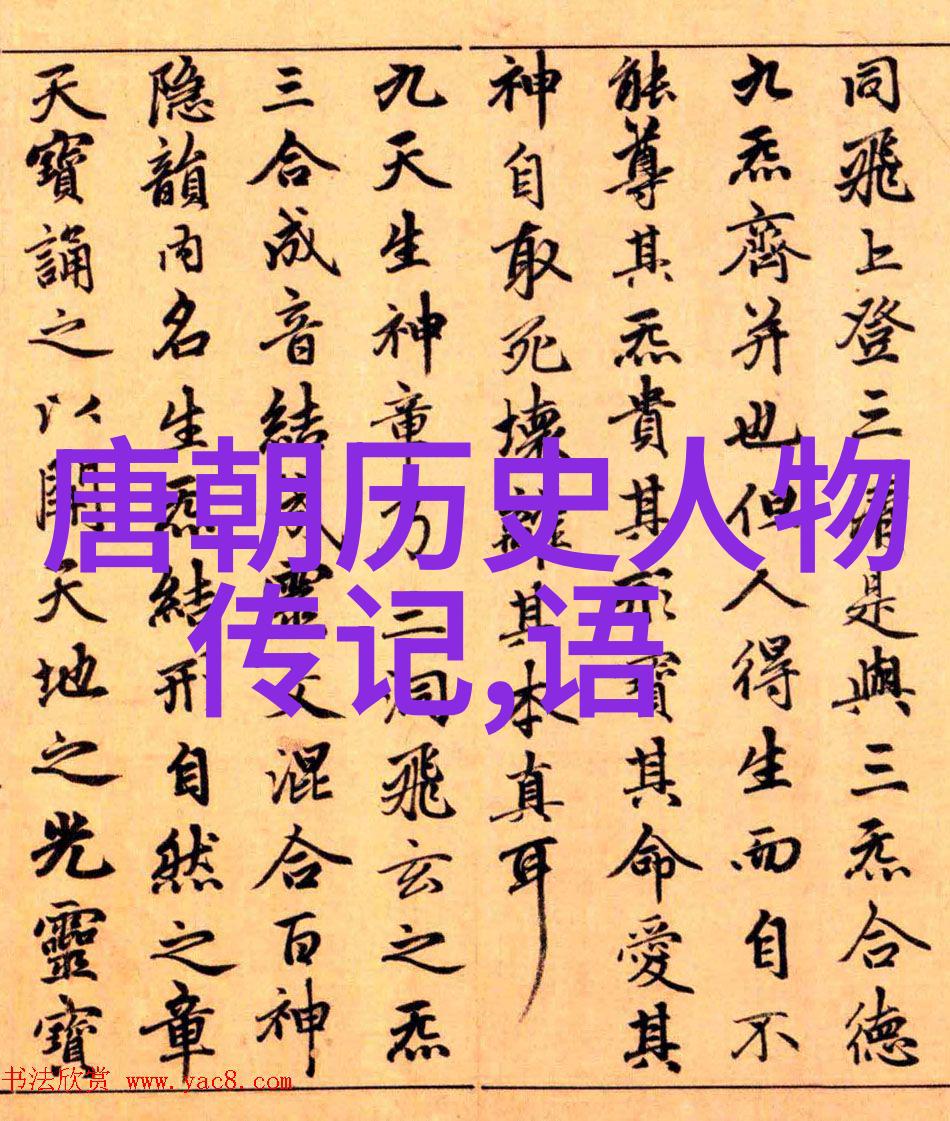 同飛上登三清是與三炁合德
九炁齊并也但人得生而自不
能尊其炁貴其形寶其命愛其
神自取死壞離其本真耳
九天生神章乃三洞飛玄之炁
三合成音結成靈文混合百神
隱韻內名生炁結形自然之章
天寶誦之以開天地之光靈寶
唐朝历史人物
传记,语
书法欣赏 www.yac8.com